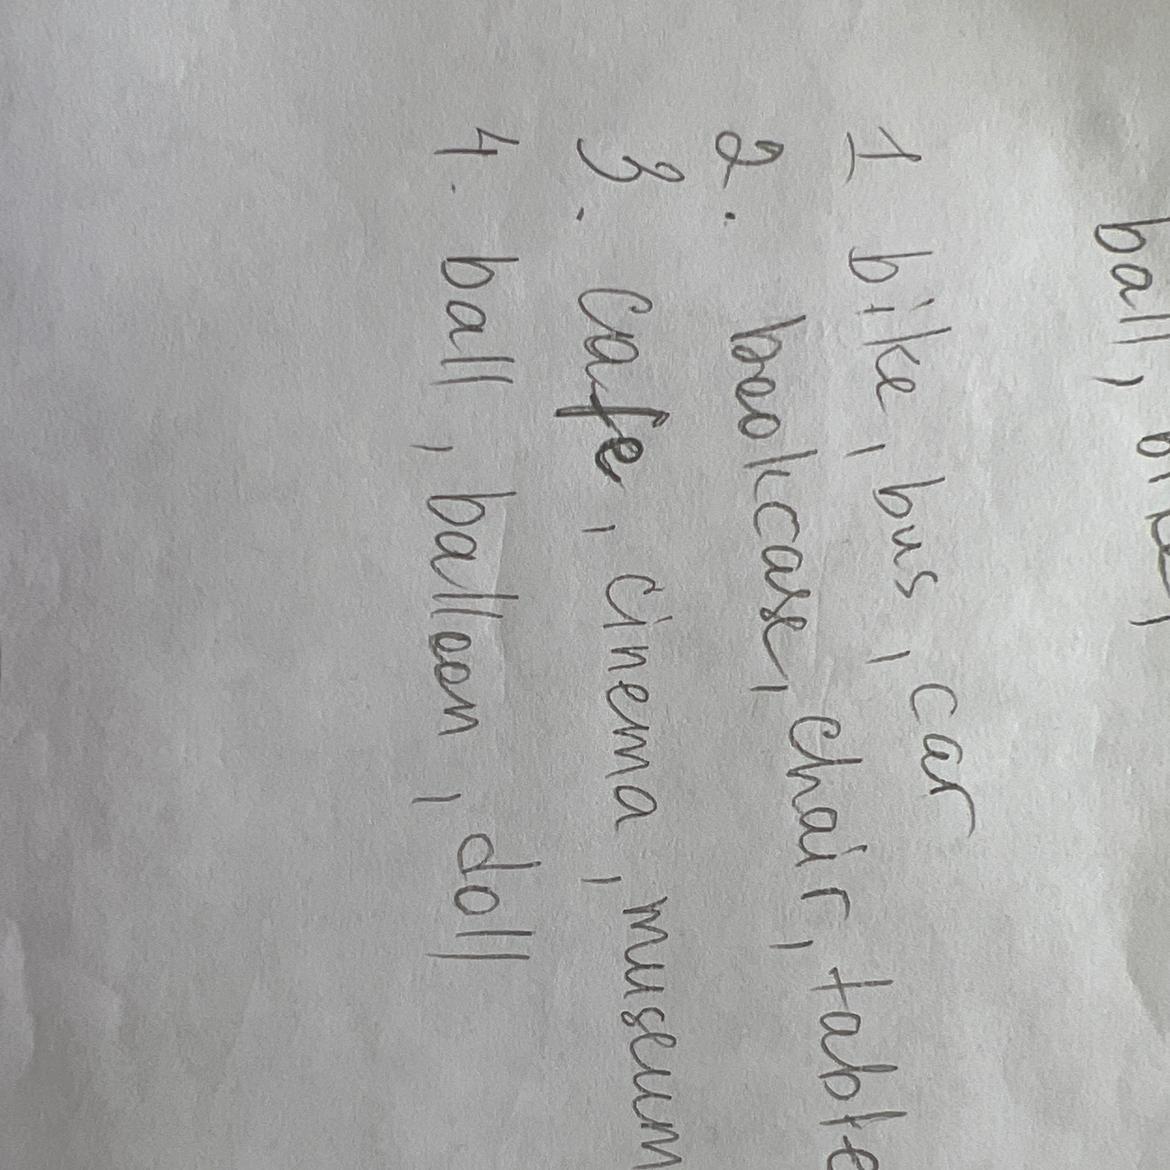 ball,
1 bike, bus, car
2. bookcase, chair, table
3. cafe, cinema, museum
4. ball, balloon, doll